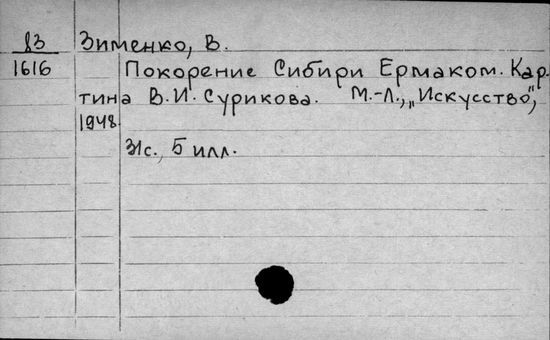 83 Зименко, В.
1616 Покорение Сибири Ермаком. Кар-
тина В.И. Сурикова. М.-Л., „Искусство",
1948.
31с., 5 илл.